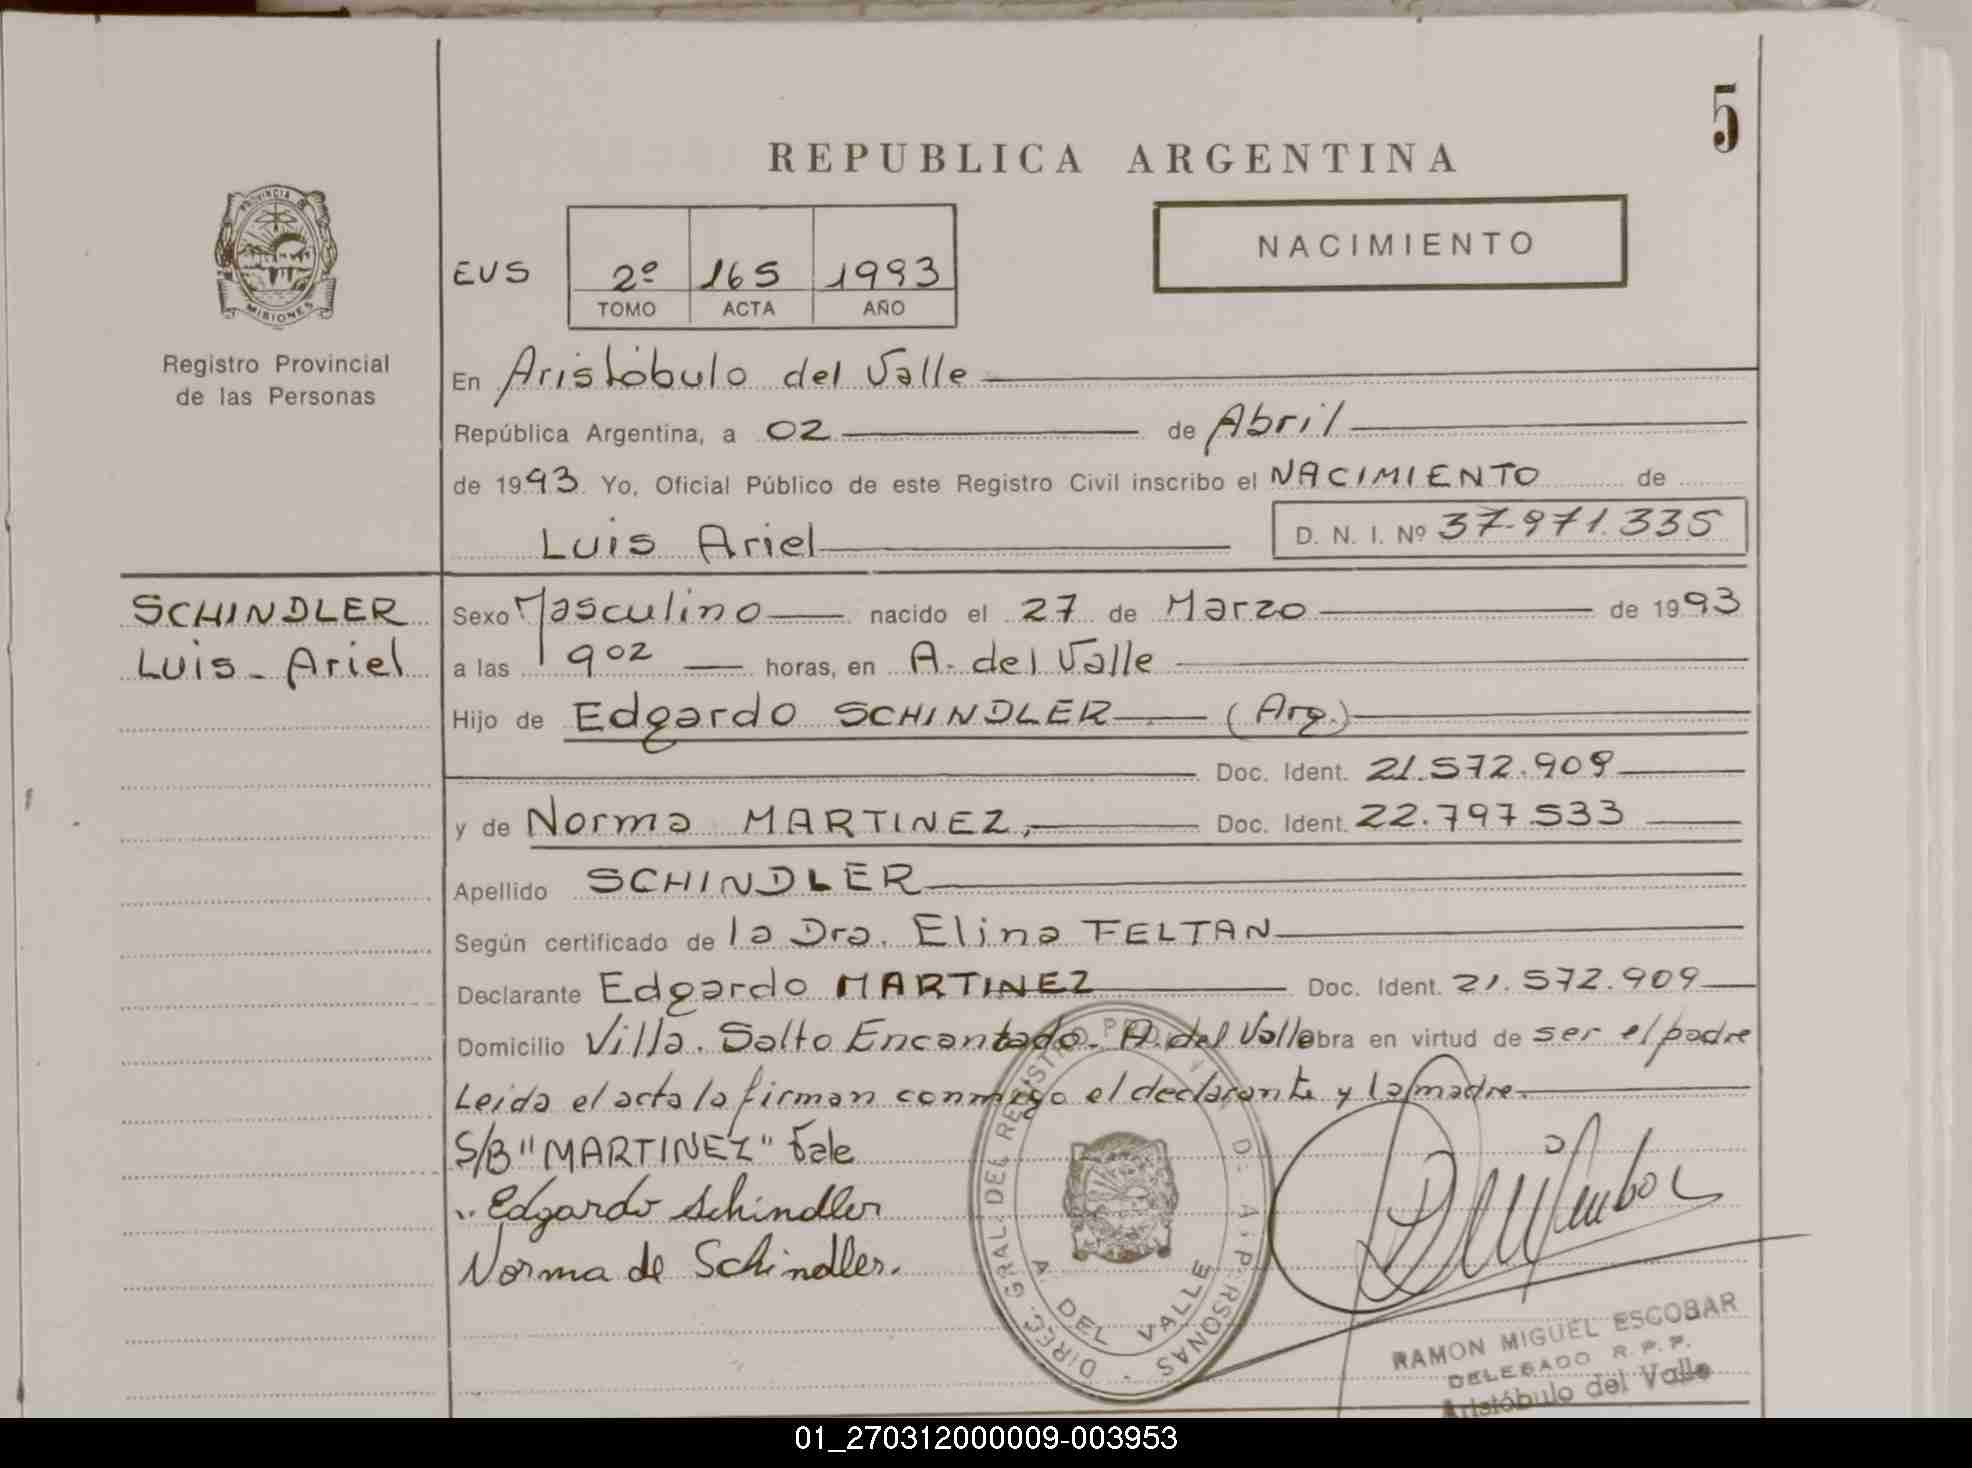 5
REPUBLICA ARGENTINA
PROVINCIA DE
MISIONES
Registro Provincial
de las Personas
EVS
2º 165 1993
TOMO ACTA AÑO
NACIMIENTO
En Aristóbulo del Valle
República Argentina, a 02 de Abril
de 1993 Yo, Oficial Público de este Registro Civil inscribo el NACIMIENTO de
Luis Ariel D. N. I. Nº 37.971.335
SCHINDLER
Luis - Ariel
Sexo Masculino nacido el 27 de Marzo de 1993
a las 9 02 horas, en A. del Valle
Hijo de Edgardo SCHINDLER (Arg.)
Doc. Ident. 21.572.909
y de Norma MARTINEZ. Doc. Ident. 22.797.533
Apellido SCHINDLER
Según certificado de la Dra. Elina FELTAN
Declarante Edgardo MARTINEZ Doc. Ident. 21.572.909
Domicilio Villa. Salto Encantado. A. del Valle obra en virtud de ser el padre
Leida el acta la firman conmigo el declarante y la madre.
S/B "MARTINEZ" Vale
Edgardo Schindler
Norma de Schindler.
DIREC. GRAL. DEL REGISTRO
A DEL VALLE
RAMON MIGUEL ESCOBAR
DELEGADO R. P. P.
Aristóbulo del Valle
01_270312000009-003953